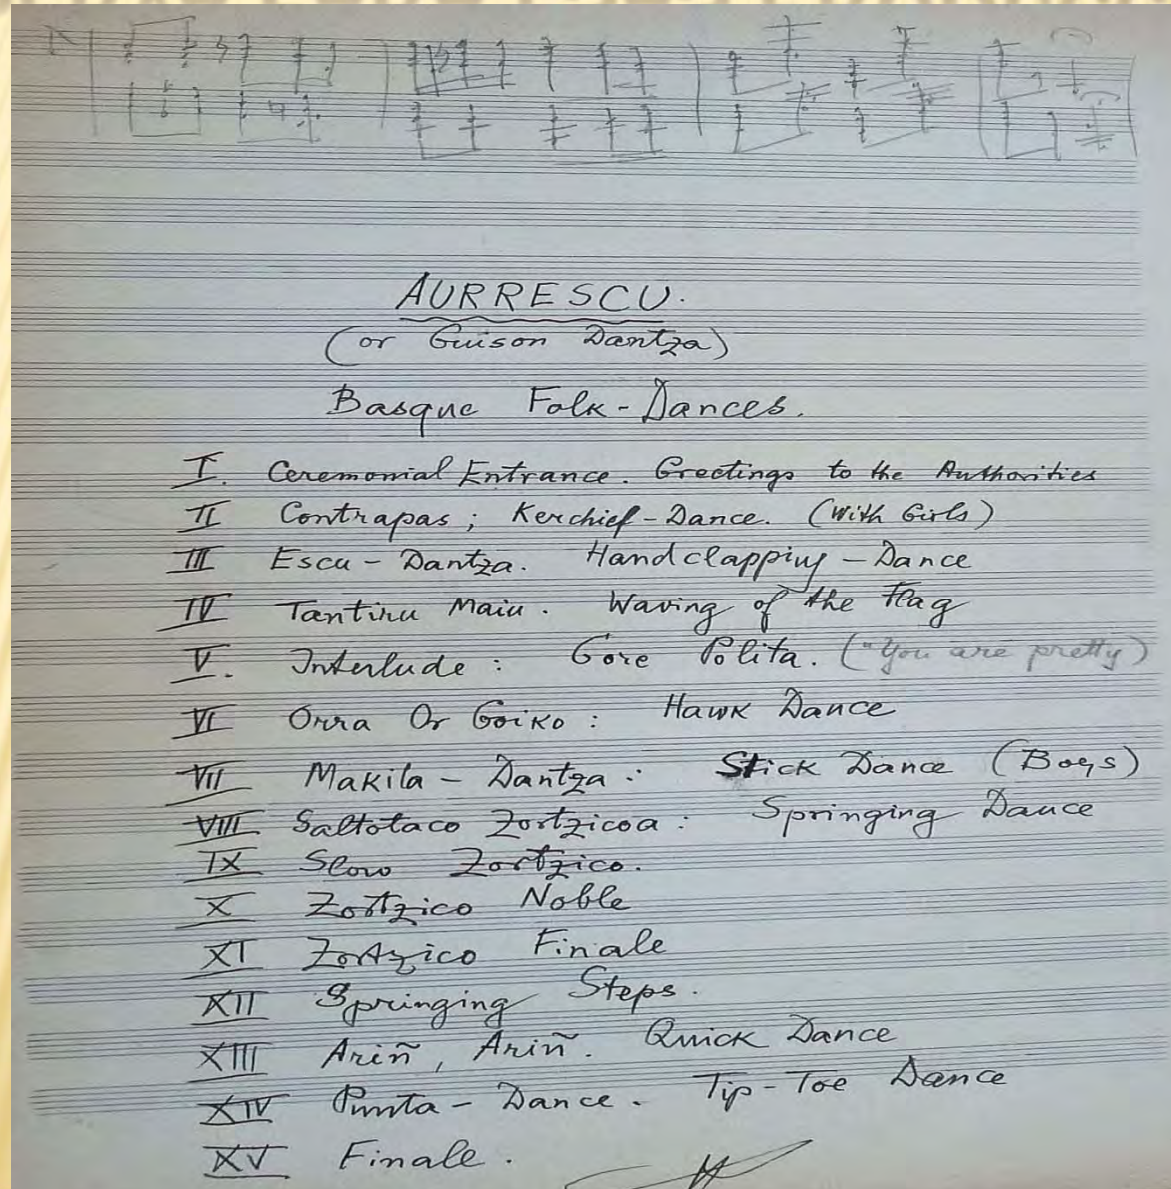 AURRESCU.
(or Guison Dantza)
Basque Folk-Dances.
I. Ceremonial Entrance. Greetings to the Authorities
II Contrapas; Kerchief-Dance. (With Girls)
III Escu-Dantza. Handclapping-Dance
IV Tantiru Maiu. Waving of the Flag
V. Interlude: Gore Polita. ("You are pretty)
VI Orra Or Goiko: Hawk Dance
VII Makila-Dantza: Stick Dance (Boys)
VIII Saltotaco Zortzicoa: Springing Dance
IX Slow Zortzico.
X Zortzico Noble
XI Zortzico Finale
XII Springing Steps.
XIII Ariñ, Ariñ. Quick Dance
XIV Punta-Dance. Tip-Toe Dance
XV Finale.